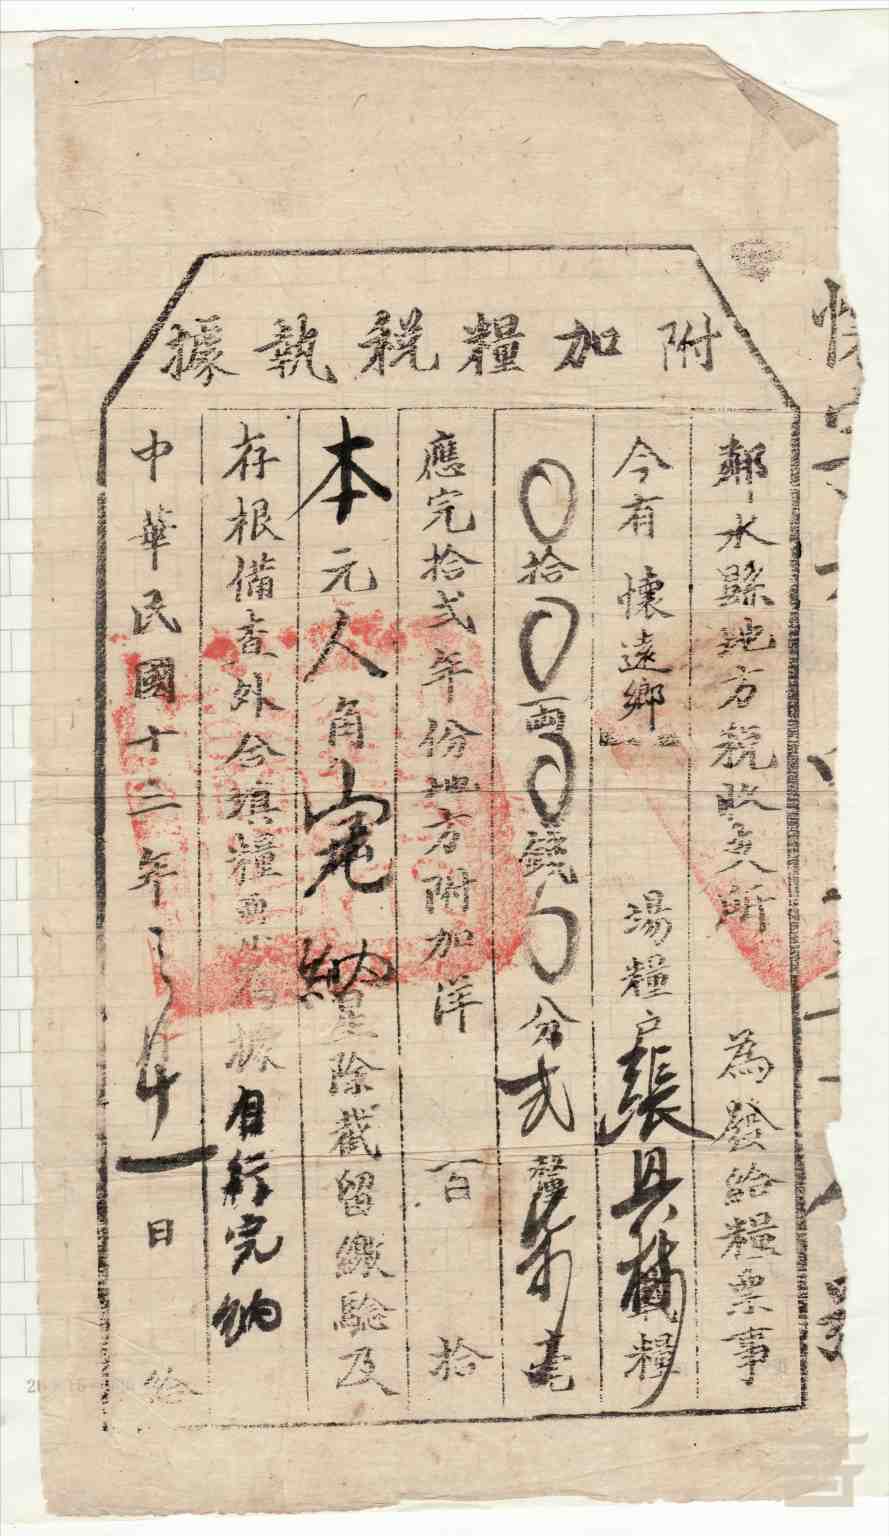 附加糧税執據
鄰水縣地方税收支所 為發給糧票事
今有懷遠鄉 場糧户張具 載糧
〇拾〇両〇錢〇分弍釐 毫
應完拾弍年份地方附加洋 百 拾
本元人角完納 除截留繳驗及
存根備查外合填糧票 為據自行完納
中華民國十二年 月廿一日 給
懷